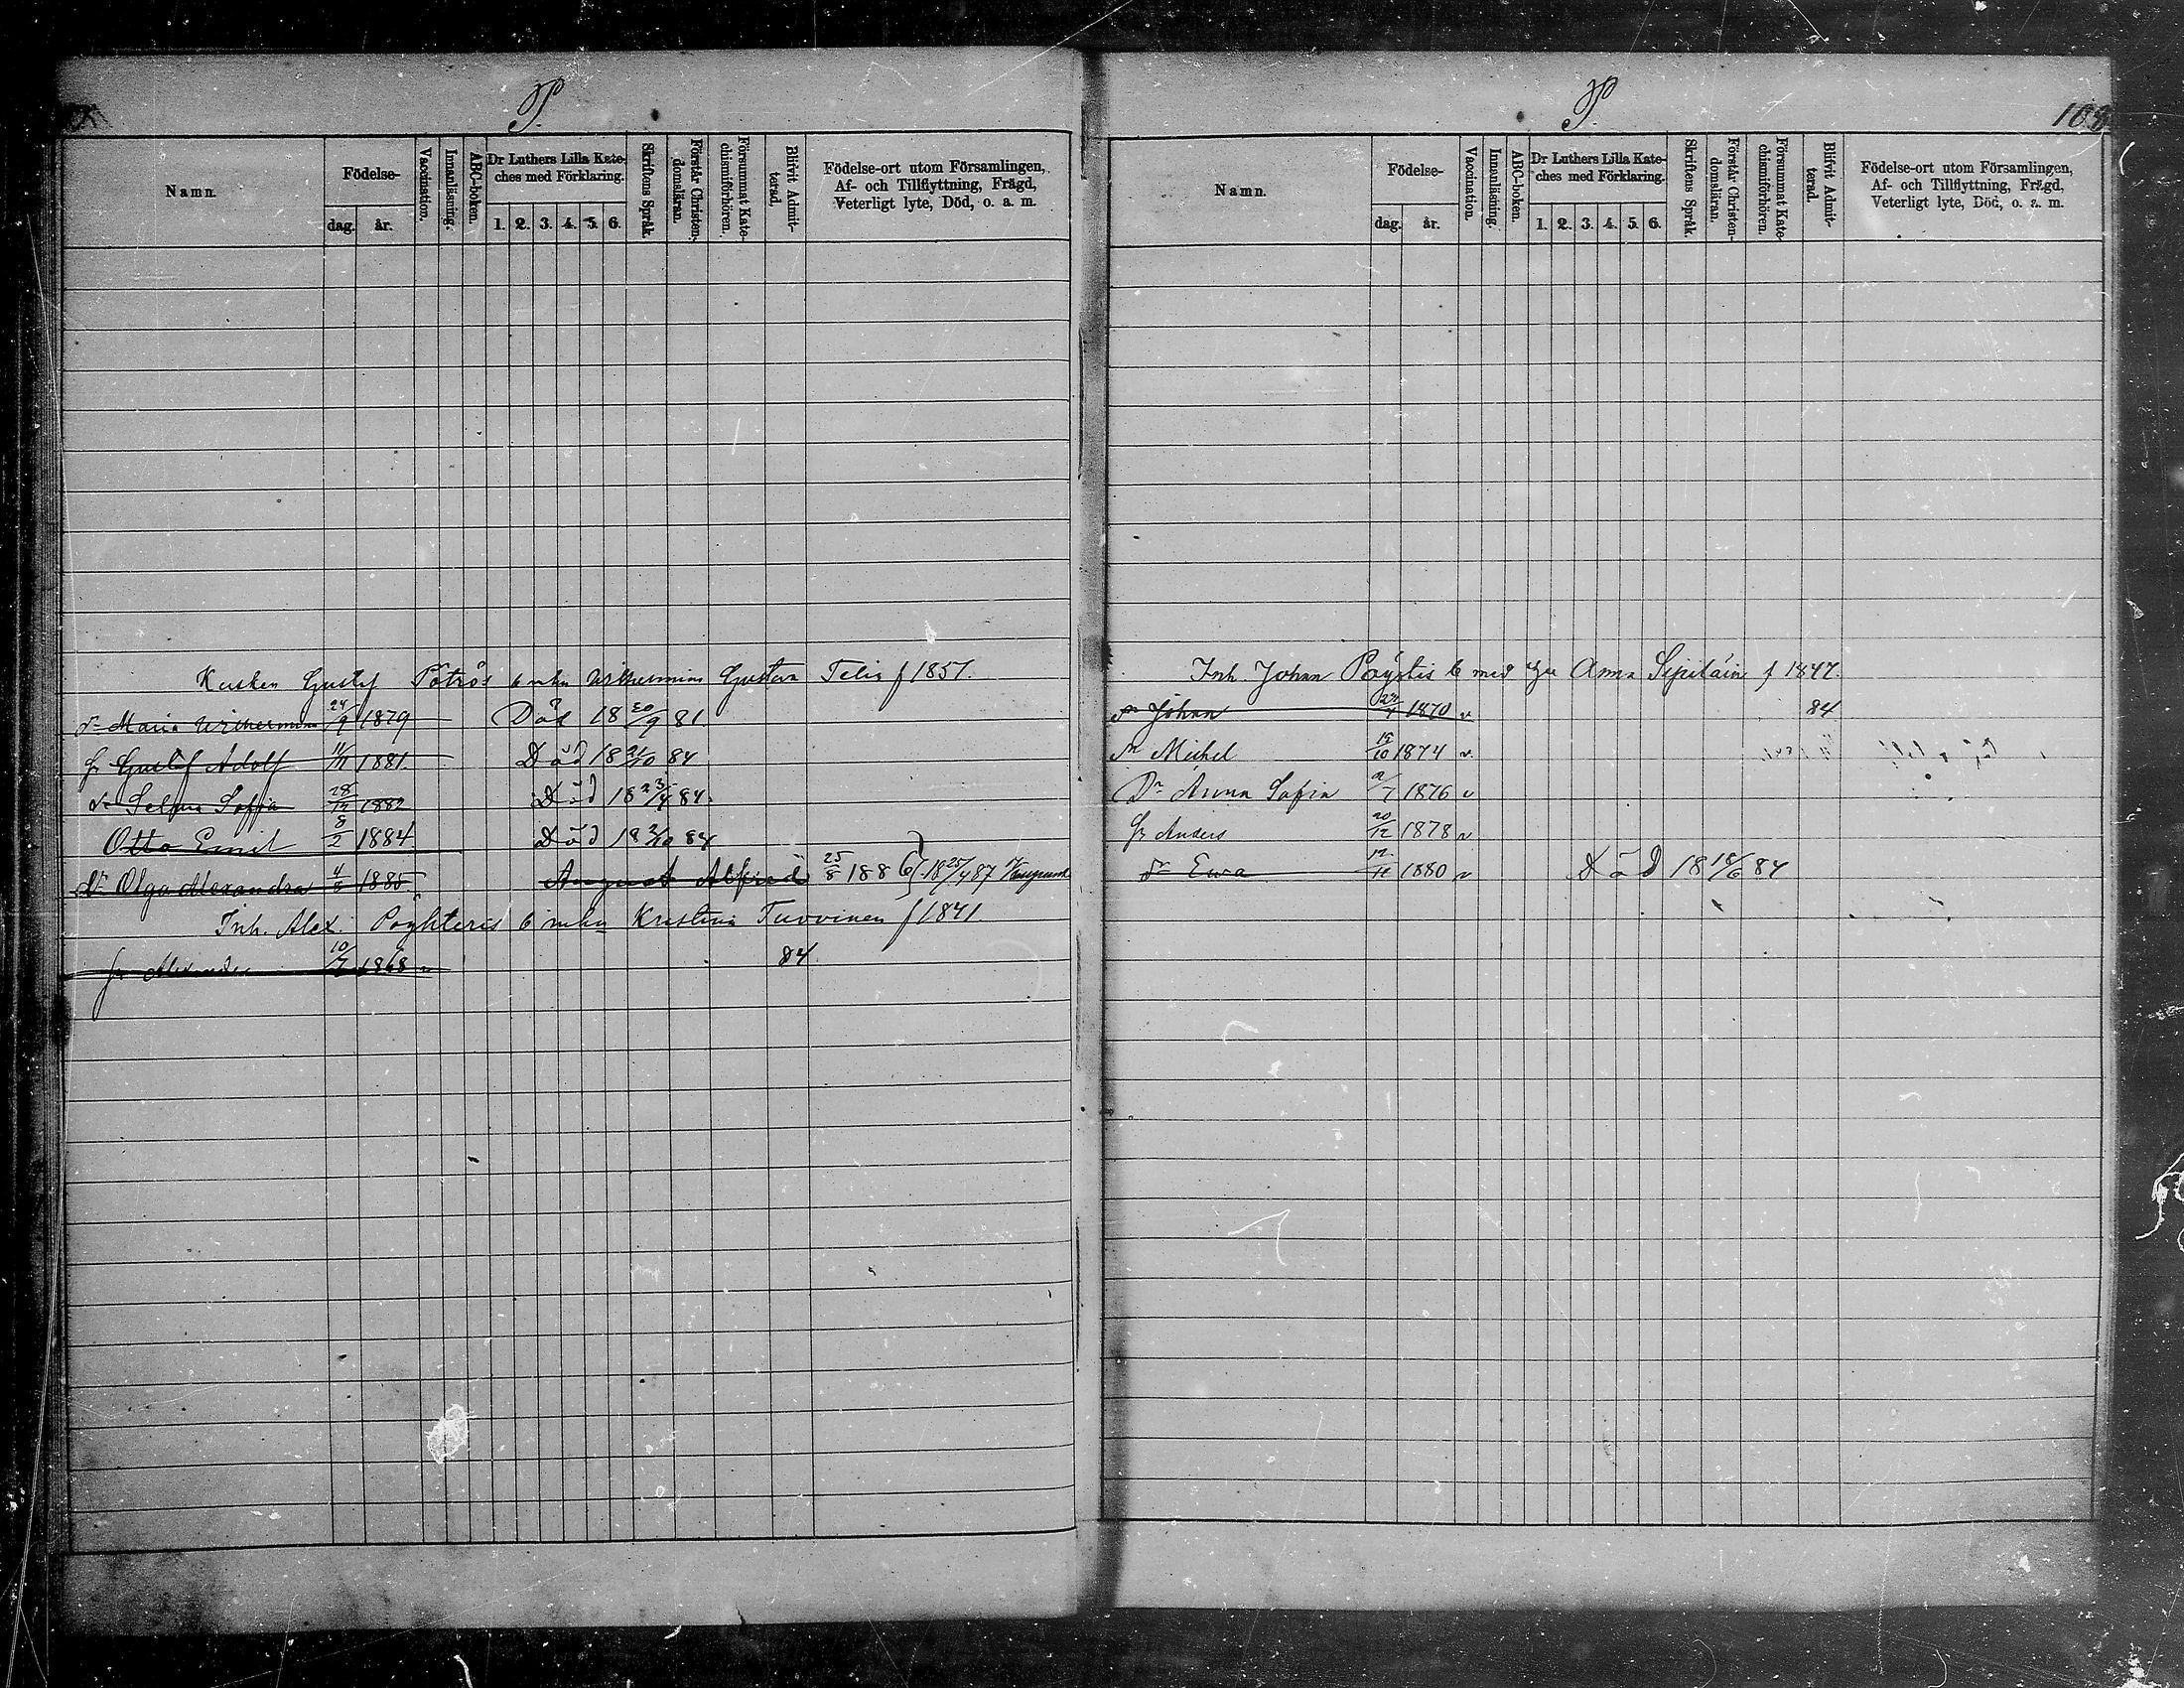 P.
Namn. Födelse- Vaccination. Innanläsning. ABC-boken. Dr Luthers Lilla Kate-ches med Förklaring. Skriftens Språk. Förstår Christen-domsläran. Försummat Kate-chismiförhören. Blifvit Admit-terad. Födelse-ort utom Församlingen, Af- och Tillflyttning, Frägd, Veterligt lyte, Död, o. a. m.
dag. år. 1. 2. 3. 4. 5. 6.
Kusken Gustaf Gustava Telin f 1857.
Maria Wilhelmina 24/9 1879 Död 18 30/9 81.
Gustaf Adolf 1881. Död 18 21/10 84
Selma Sofia 28/12 1882 Död 18 23/4 84.
Otto Emil 8/2 1884 Död 18 2/10 84
Dr Olga Alexandra 1885. August Alfred 25/8 1886} 18 25/4 87
Inh. Alex. Pöyhteris Kristina Tuovinen f 1841.
Alexander 10/7 1868 v 84.
P. 108
Namn. Födelse- Vaccination. Innanläsning. ABC-boken. Dr Luthers Lilla Kate-ches med Förklaring. Skriftens Språk. Förstår Christen-domsläran. Försummat Kate-chismiförhören. Blifvit Admit-terad. Födelse-ort utom Församlingen, Af- och Tillflyttning, Frägd, Veterligt lyte, Död, o. a. m.
dag. år. 1. 2. 3. 4. 5. 6.
Inh. Johan Pöystis med Anna Sipiläin f 1847.
Johan 1870 v. 84
Michel 15/10 1874 v.
Dr Anna Sofia 1876 v
Anders 20/12 1878 v
Dr Ewa 1880 v Död 18 18/6 84